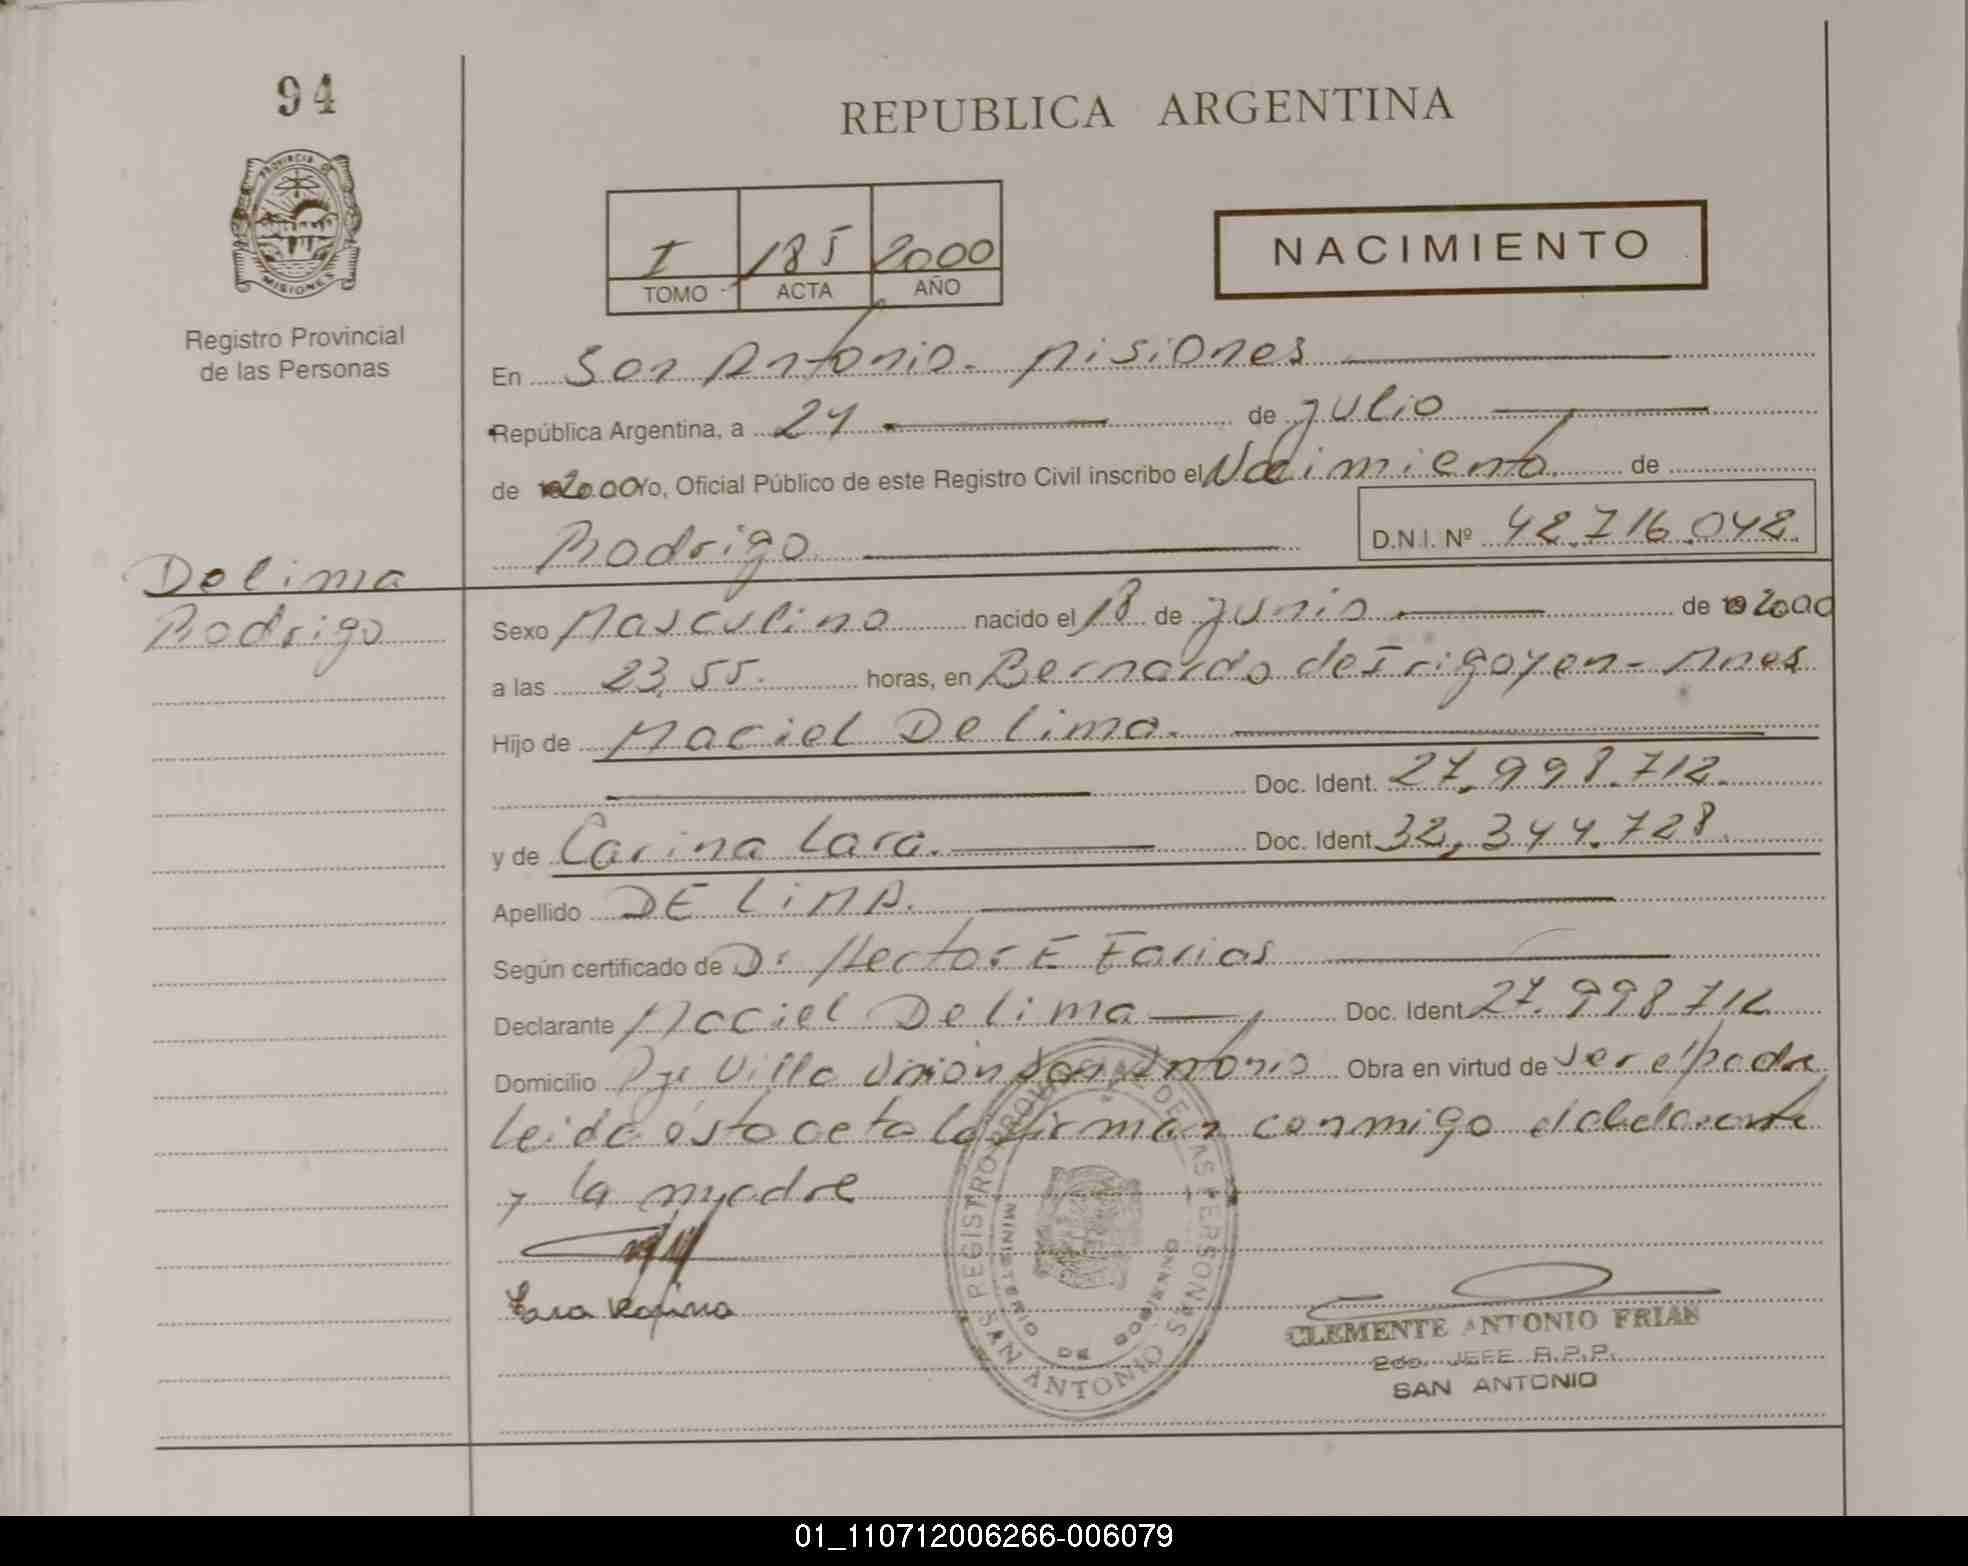 94
REPUBLICA ARGENTINA
PROVINCIA DE
MISIONES
Registro Provincial
de las Personas
I 185 2000
TOMO ACTA AÑO
NACIMIENTO
En San Antonio. Misiones
República Argentina, a 24 de julio
de 2000 Yo, Oficial Público de este Registro Civil inscribo el Nacimiento de
Rodrigo D.N.I. Nº 42.716.042
De lima
Rodrigo
Sexo Masculino nacido el 18 de junio de 2000
a las 23,55. horas, en Bernardo de Irigoyen - Mnes
Hijo de Maciel De lima.
Doc. Ident. 27,998.712.
y de Carina Lara. Doc. Ident 32,344.728.
Apellido DE LiMA.
Según certificado de Dr Hector E Farias
Declarante Maciel De lima Doc. Ident 27.998.712
Domicilio Pje Villa Unión San Antonio Obra en virtud de ser el padre
leida ésta acta la firman conmigo el declarante
y la madre
Lara Karina
REGISTRO PROVINCIAL DE LAS PERSONAS
MINISTERIO DE GOBIERNO
SAN ANTONIO
CLEMENTE ANTONIO FRIAS
2do. JEFE R.P.P.
SAN ANTONIO
01_110712006266-006079